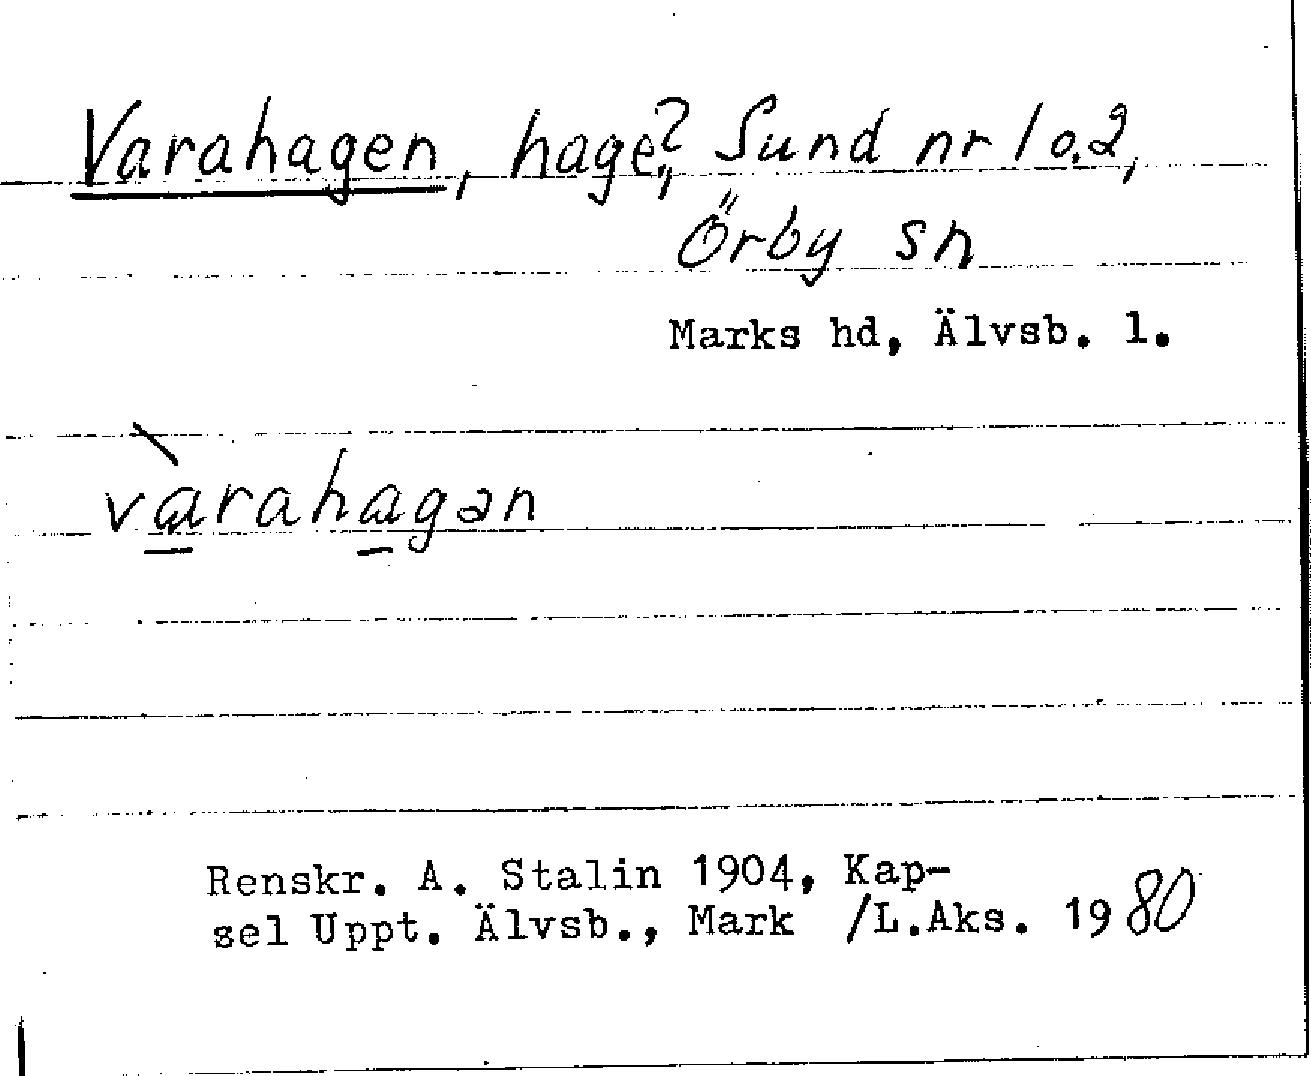 Varahagen, hage?, Sund nr 1 o. 2,
Örby sn
Marks hd, Älvsb. l.
v̀a̱raha̱gən
Renskr. A. Stalin 1904, Kap-
sel Uppt. Älvsb., Mark /L.Aks. 1980